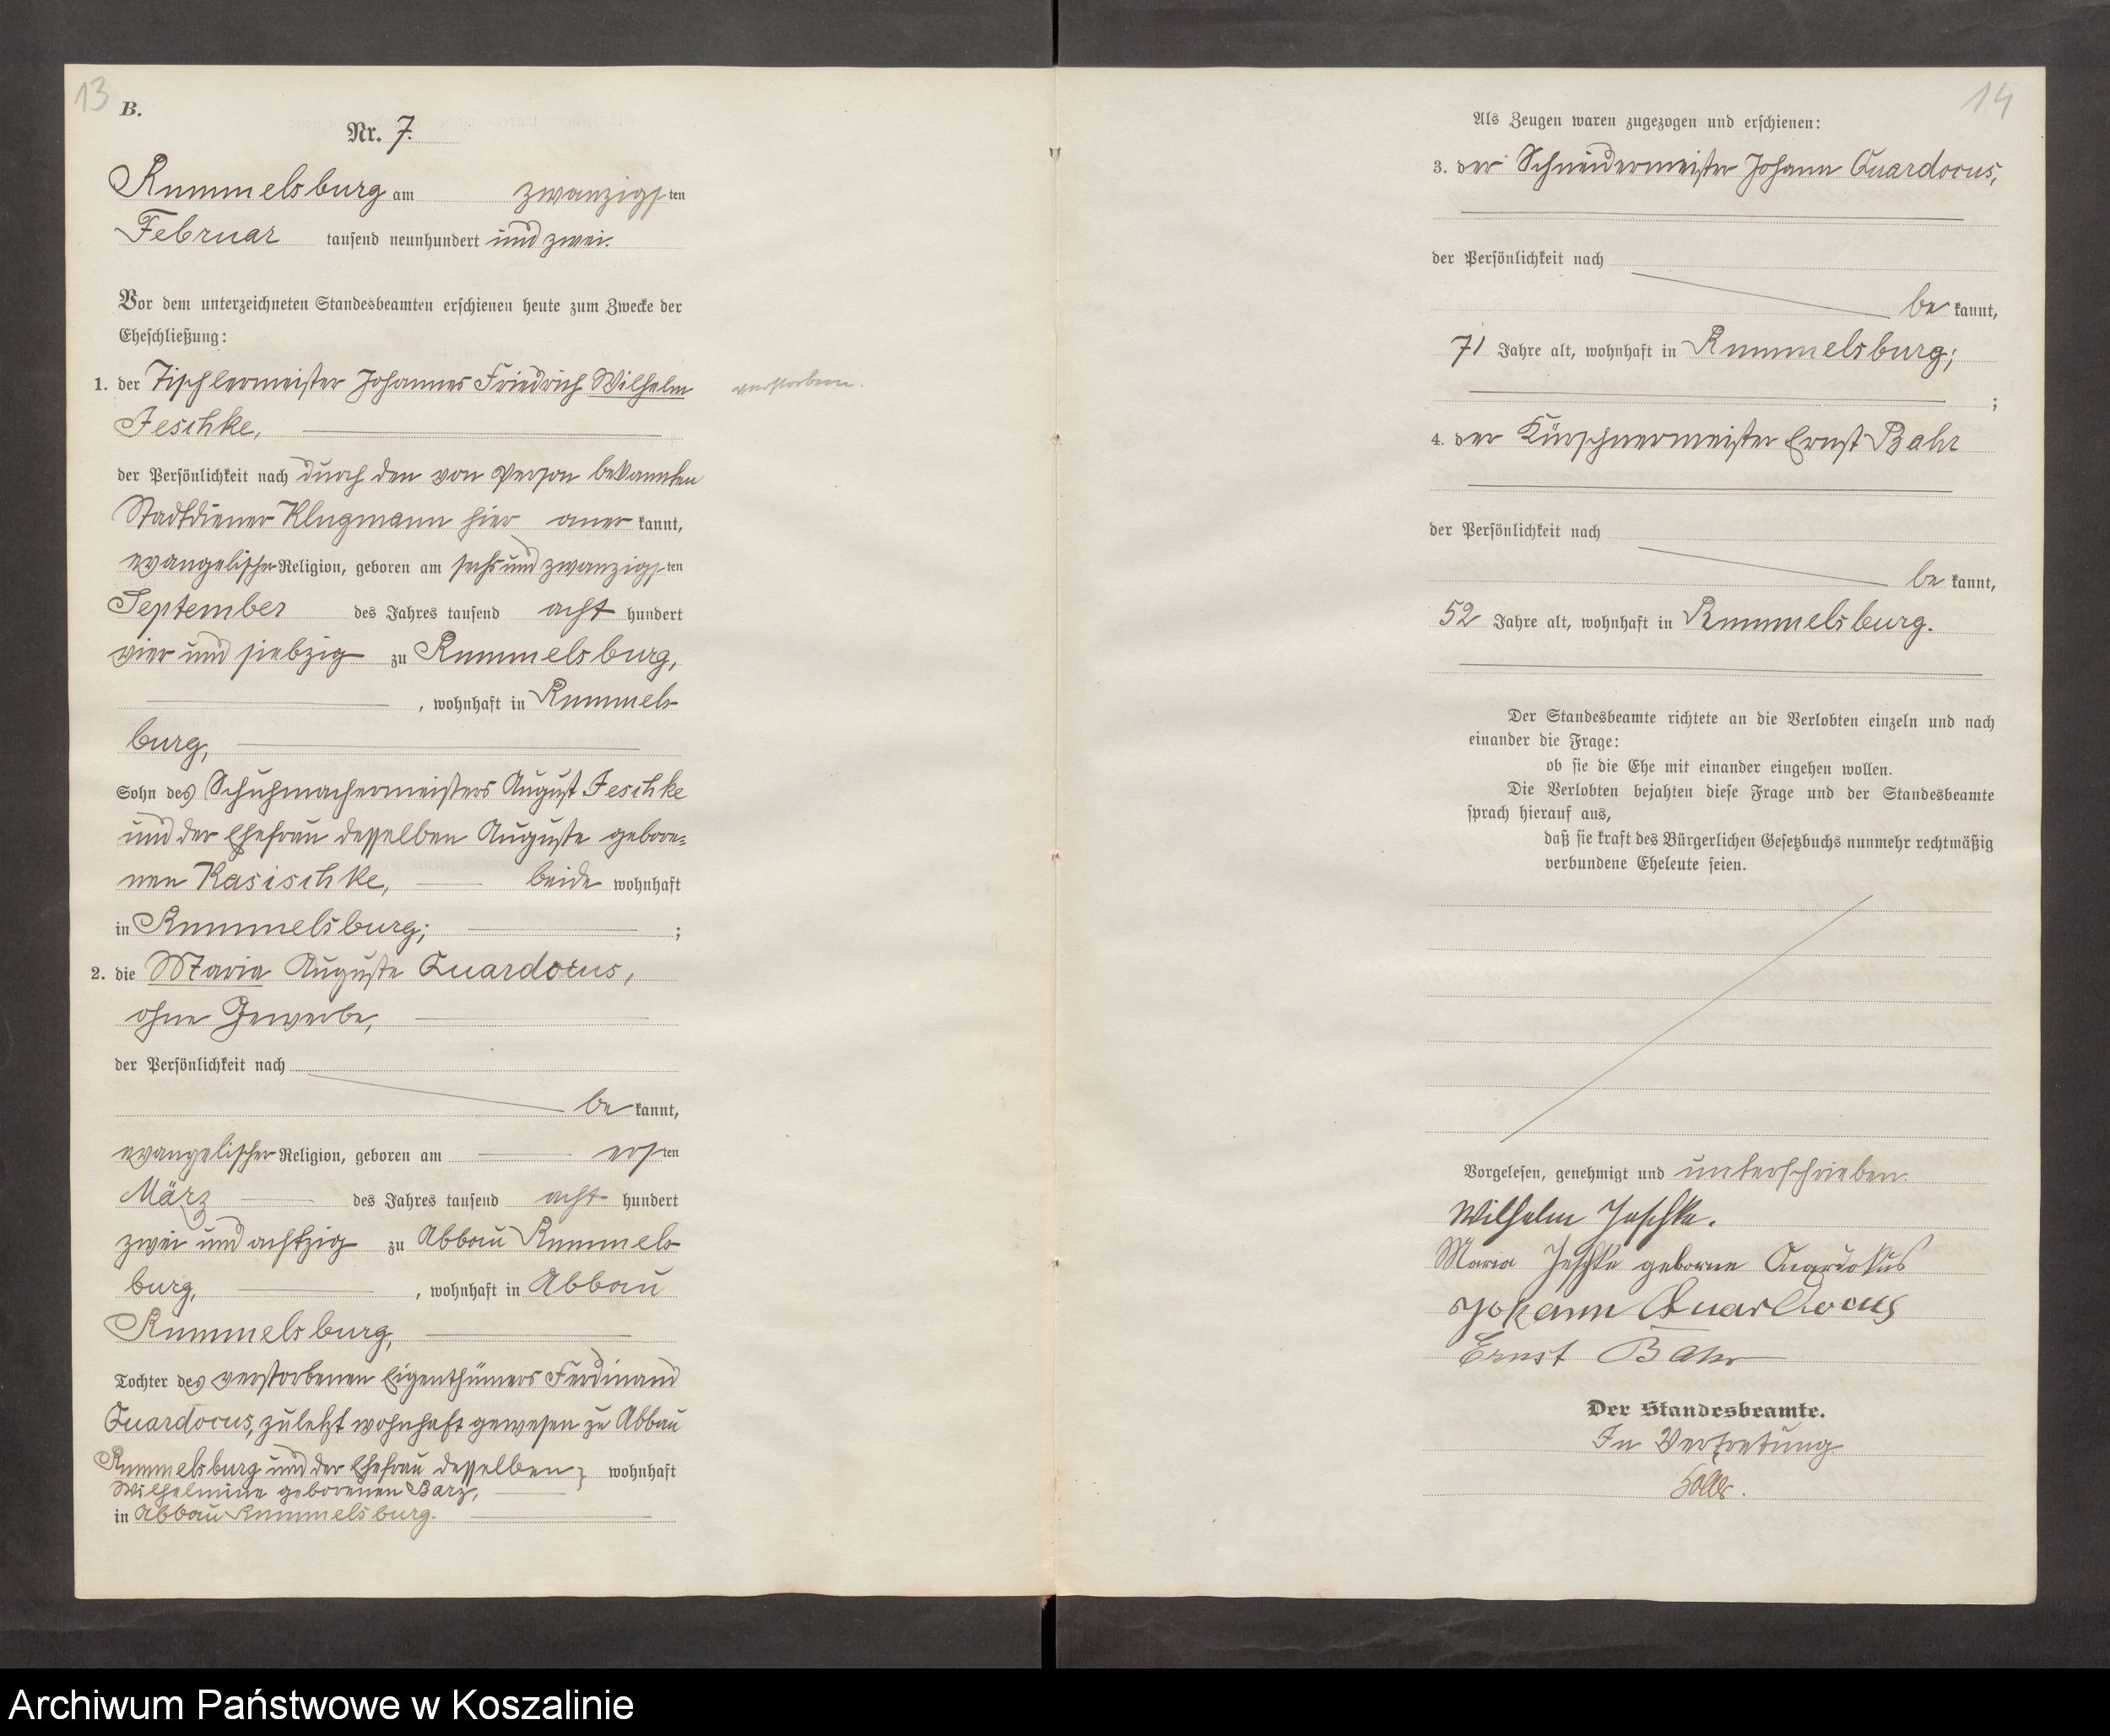 13
B.
Nr. 7.
Rummelsburg am zwanzigsten
Februar tausend neunhundert und zwei.
Vor dem unterzeichneten Standesbeamten erschienen heute zum Zwecke der
Eheschließung:
1. der Tischlermeister Johannes Friedrich Wilhelm
verstorben.
Jeschke,
der Persönlichkeit nach durch den von Person bekannten
Stadtdiener Klugmann hier anerkannt,
evangelischer Religion, geboren am sechsundzwanzigsten
September des Jahres tausend acht hundert
vier und siebzig zu Rummelsburg,
, wohnhaft in Rummels-
burg,
Sohn des Schuhmachermeisters August Jeschke
und der Ehefrau desselben Auguste gebore=
nen Kasischke, beide wohnhaft
in Rummelsburg; ;
2. die Maria Auguste Quardocus,
ohne Gewerbe,
der Persönlichkeit nach
bekannt,
evangelischer Religion, geboren am ersten
März des Jahres tausend acht hundert
zwei und achtzig zu Abbau Rummels-
burg, , wohnhaft in Abbau
Rummelsburg,
Tochter des verstorbenen Eigenthümers Ferdinand
Quardocus, zuletzt wohnhaft gewesen zu Abbau
Rummelsburg und der Ehefrau desselben wohnhaft
Wilhelmine geborenen Barz,
in Abbau Rummelsburg.
14
Als Zeugen waren zugezogen und erschienen:
3. der Schneidermeister Johann Quardocus,
der Persönlichkeit nach
bekannt,
71 Jahre alt, wohnhaft in Rummelsburg;
;
4. der Kürschnermeister Ernst Bahr
der Persönlichkeit nach
bekannt,
52 Jahre alt, wohnhaft in Rummelsburg.
Der Standesbeamte richtete an die Verlobten einzeln und nach
einander die Frage:
ob sie die Ehe mit einander eingehen wollen.
Die Verlobten bejahten diese Frage und der Standesbeamte
sprach hierauf aus,
daß sie kraft des Bürgerlichen Gesetzbuchs nunmehr rechtmäßig
verbundene Eheleute seien.
Vorgelesen, genehmigt und unterschrieben.
Wilhelm Jeschke.
Maria Jeschke geborne Quardokus
Johann Quardocus
Ernst Bahr
Der Standesbeamte.
In Vertretung
Archiwum Państwowe w Koszalinie